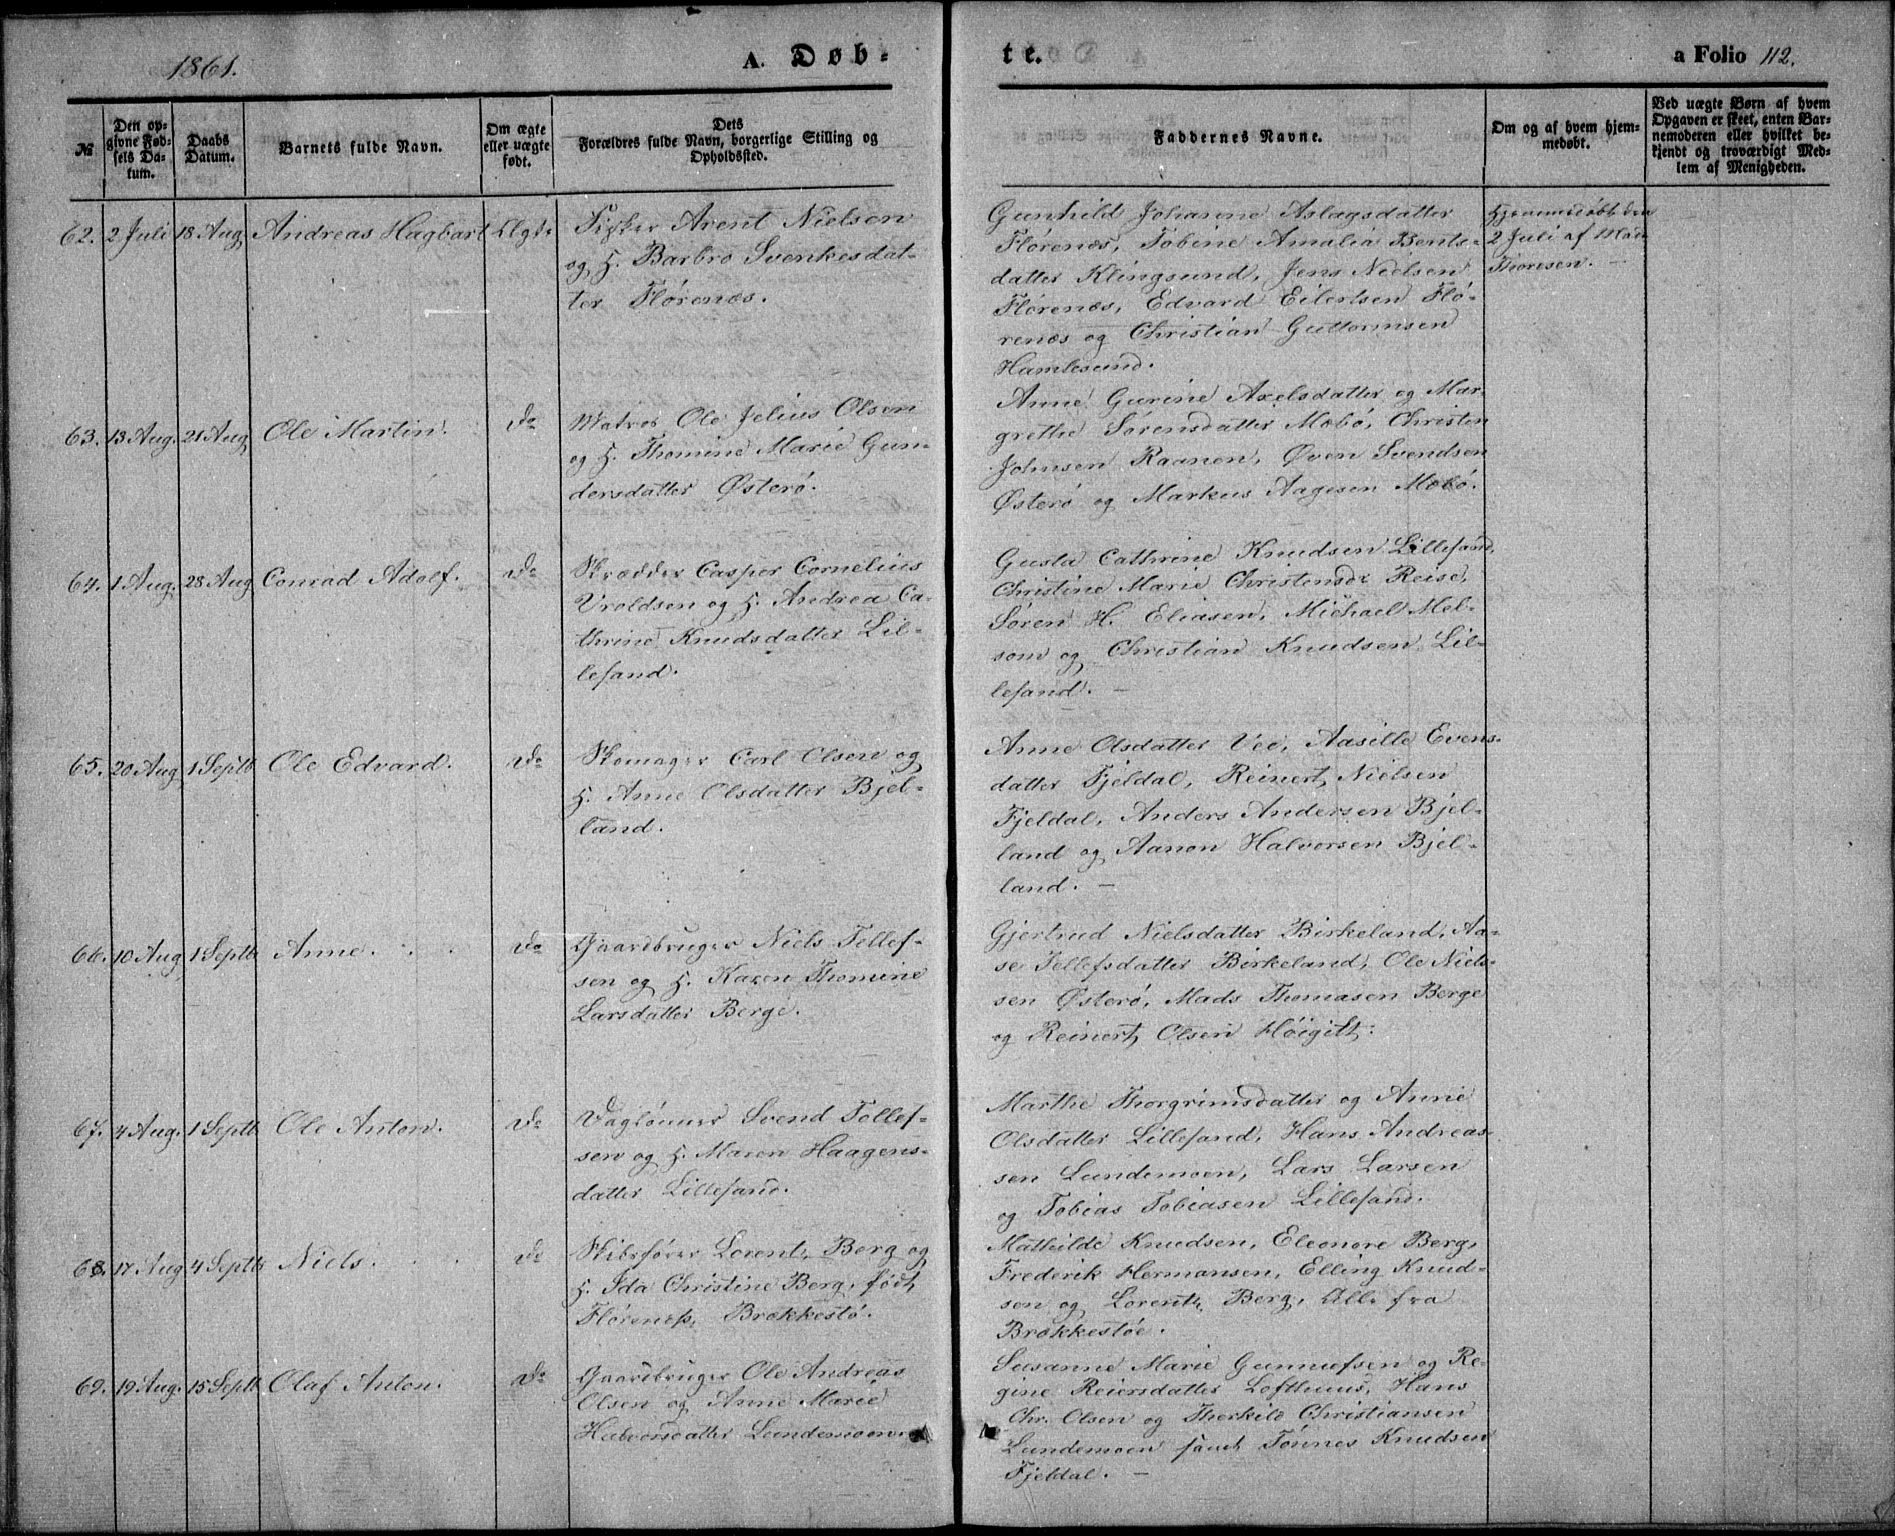 1861.
A. Døb-
te.
a Folio 112.
№
Den op-
givne Fød-
sels Da-
tum.
Daabs
Datum.
Barnets fulde Navn.
Om ægte
eller uægte
født.
Dets
Forældres fulde Navn, borgerlige Stilling og
Opholdssted.
Faddernes Navne.
Om og af hvem hjem-
medøbt.
Ved uægte Børn af hvem
Opgaven er skeet, enten Bar-
nemoderen eller hvilket be-
kjendt og troværdigt Med-
lem af Menigheden.
62. 2 Juli 18 Aug Andreas Hagbart Ægte
Fisker Arent Nielsen
og H. Barbro Svenkesdat-
ter Flørenæs.
Gunhild Johanne Aslagsdatter
Flørenæs, Tobine Amalia Bents-
datter Klingsund, Jens Nielsen
Flørenæs, Edvard Eilertsen Flø-
renæs og Christian Guttormsen
Hamlesund.
Hjemmedøbt den
2 Juli af
Thoresen. —
63. 13 Aug. 21 Aug Ole Martin. Do
Matros Ole Jelius Olsen
og H. Thomine Marie Gun-
dersdatter Østerø.
Anne Gurine Axelsdatter og Mar-
grethe Sørensdatter Mæbø, Christen
Johnsen Raanen, Øven Svendsen
Østerø og Markus Aagesen Mæbø.
64. 1 Aug. 28 Aug Conrad Adolf. Do
Skrædder Casper Cornelius
Vroldsen og H. Andrea Ca-
thrine Knudsdatter Lil-
lesand.
Gusta Cathrine Knudsen Lillesand,
Christine Marie Christensdr Reise,
Søren H. Eliasen, Michael Mel-
som og Christian Knudsen Lil-
lesand. —
65. 20 Aug 1 Septb Ole Edvard. Do
Skomager Carl Olsen og
H. Anne Olsdatter Bjel-
land.
Anne Olsdatter Vee, Aasille Evens-
datter Fjeldal, Reinert Nielsen
Fjeldal, Anders Andersen Bjel-
land og Aanon Halvorsen Bjel-
land. —
66. 10 Aug 1 Septb Anne. Do
Gaardbruger Niels Tellef-
sen og H. Karen Thomine
Larsdatter Berge.
Gjertrud Nielsdatter Birkeland, Aa-
se Tellefsdatter Birkeland, Ole Niels-
sen Østerø, Mads Thomasen Berge
og Reinert Olsen Høigilt.
67. 4 Aug. 1 Septb Ole Anton. Do
Daglønner Svend Tellef-
sen og H. Maren Haagens-
datter Lillesand.
Marthe Thorgrimsdatter og Anne
Olsdatter Lillesand, Hans Andreas-
sen Lundemoen, Lars Larsen
og Tobias Tobiasen Lillesand.
68. 17 Aug 4 Septb Niels. Do
Skibsfører Lorents Berg og
H. Ida Christine Berg, født
Flørenæs, Brækkestø.
Mathilde Knudsen, Eleonore Berg,
Frederik Hermansen, Elling Knud-
sen og Lorents Berg, Alle fra
Brækkestøe.
69. 19 Aug. 15 Septb Olaf Anton. Do
Gaardbruger Ole Andreas
Olsen og Anne Marie
Halvorsdatter Lundemoen.
Susanne Marie Gunnufsen og Re-
gine Reiersdatter Lofthuus, Hans
Chr. Olsen og Therkild Christiansen
Lundemoen samt Tønnes Knudsen
Fjeldal. —